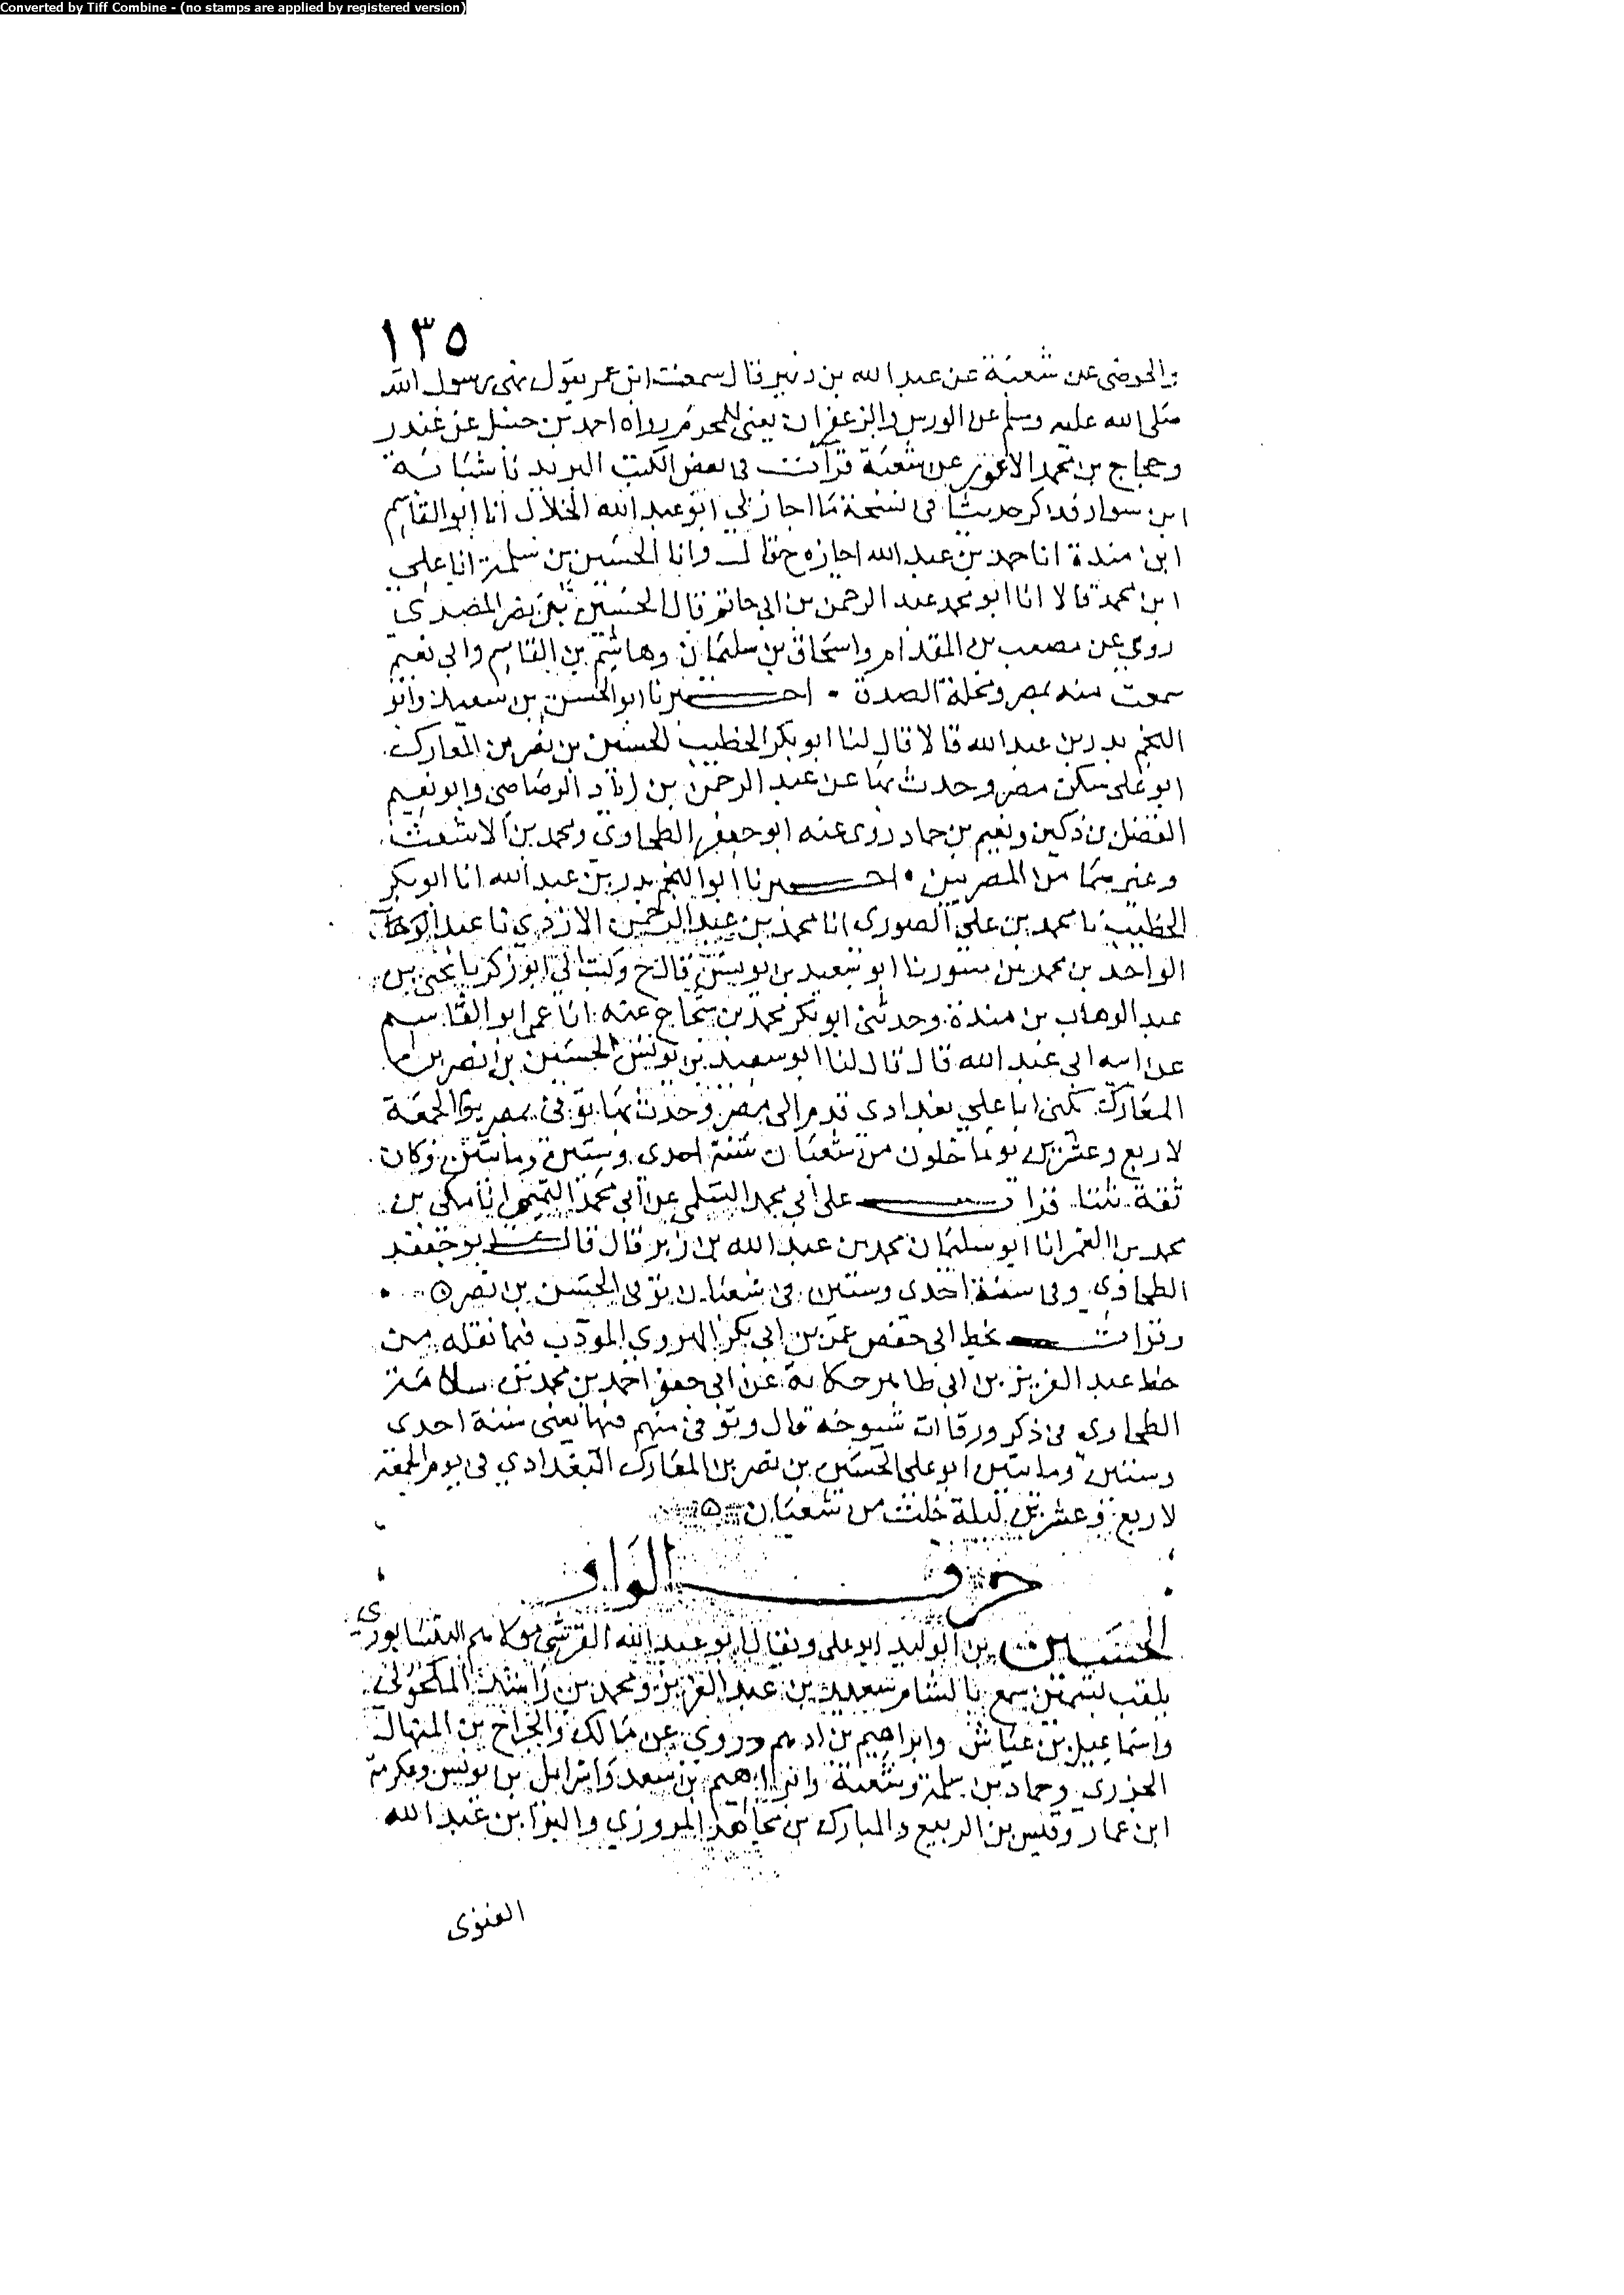 Converted by Tiff Combine - (no stamps are applied by registered version)
١٣٥
والحوضي عن شعبة عن عبد الله بن دينر قال سمعت ابن عمر يقول نهى رسول الله
صلى الله عليه وسلم عن الورس والزعفران يعني للمحرم رواه احمد بن حنبل عن غندر
وحجاج بن محمد الاعور عن شعبة قرات في بعض الكتب نا شبابة
ابن سوار فذكر حديثا في نسخة ما اجاز لي ابو عبد الله الخلال انا ابو القاسم
ابن مندة انا حمد بن عبد الله اجازه ح قال وانا الحسين بن سلمة انا علي
ابن محمد قالا انا ابو محمد عبد الرحمن بن ابي حاتم قال الحسين بن نصر المصري
روى عن مصعب بن المقدام واسحاق بن سليمان وهاشم بن القاسم وابي نعيم
سمعت منه بمصر ومحلة الصدق • اخبرنا ابو الحسن بن سعيد وابو
النجم بدر بن عبد الله قالا قال لنا ابو بكر الخطيب الحسين بن نصر بن المعارك
ابو علي سكن مصر وحدث بها عن عبد الرحمن بن زياد الرصاصي وابو نعيم
الفضل بن دكين ونعيم بن حماد روى عنه ابو جعفر الطحاوي ومحمد بن الاشعث
وغيرهما من المصريين • اخبرنا ابو النجم بدر بن عبد الله انا ابو بكر
الخطيب نا محمد بن علي الصوري انا محمد بن عبد الرحمن الازدي نا عبد
الواحد بن محمد بن مسرور نا ابو سعيد بن يونس قال ح وكتب الي ابو زكريا يحيى بن
عبد الوهاب بن مندة وحدثني ابو بكر محمد بن شجاع عنه انا عمي ابو القاسم
عن ابيه ابي عبد الله قال قال لنا ابو سعيد بن يونس الحسين بن نصر بن
المعارك يكنى ابا علي بغدادي قدم الى مصر وحدث بها توفي بمصر يوم الجمعة
لاربع وعشرين يوما خلون من شعبان سنة احدى وستين ومائتين وكان
ثقة ثبتا قرات على ابي محمد السلمي عن ابي محمد التميمي انا مكي بن
محمد بن الغمر انا ابو سليمان محمد بن عبد الله بن زبر قال قال ابو جعفر
الطحاوي وفي سنة احدى وستين في شعبان توفي الحسن بن نصر ه
وقرات بخط ابي حفص عمر بن ابي بكر الهروي المودب فيما نقله من
خط عبد العزيز بن ابي طاهر حكاية عن ابي جعفر احمد بن محمد بن سلامة
الطحاوي في ذكر وفاات شيوخه قال وتوفي منهم فيها يعني سنة احدى
وستين ومائتين ابو علي الحسين بن نصر بن المعارك البغدادي في يوم الجمعة
لاربع وعشرين ليلة خلت من شعبان ه
حرف الواو
الحسين بن الوليد ابو علي ويقال ابو عبد الله القرشي مولاهم النيسابوري
يلقب سمع بالشام سعيد بن عبد العزيز ومحمد بن راشد المكحولي
واسماعيل بن عياش وابراهيم بن ادهم وروى عن مالك والجراح بن المنهال
الجزري وحماد بن سلمة وشعبة وابراهيم بن سعد واسرائيل بن يونس وعكرمة
ابن عمار وقيس بن الربيع والمبارك بن مجاهد المروزي والبزا بن عبد الله
الغنوي